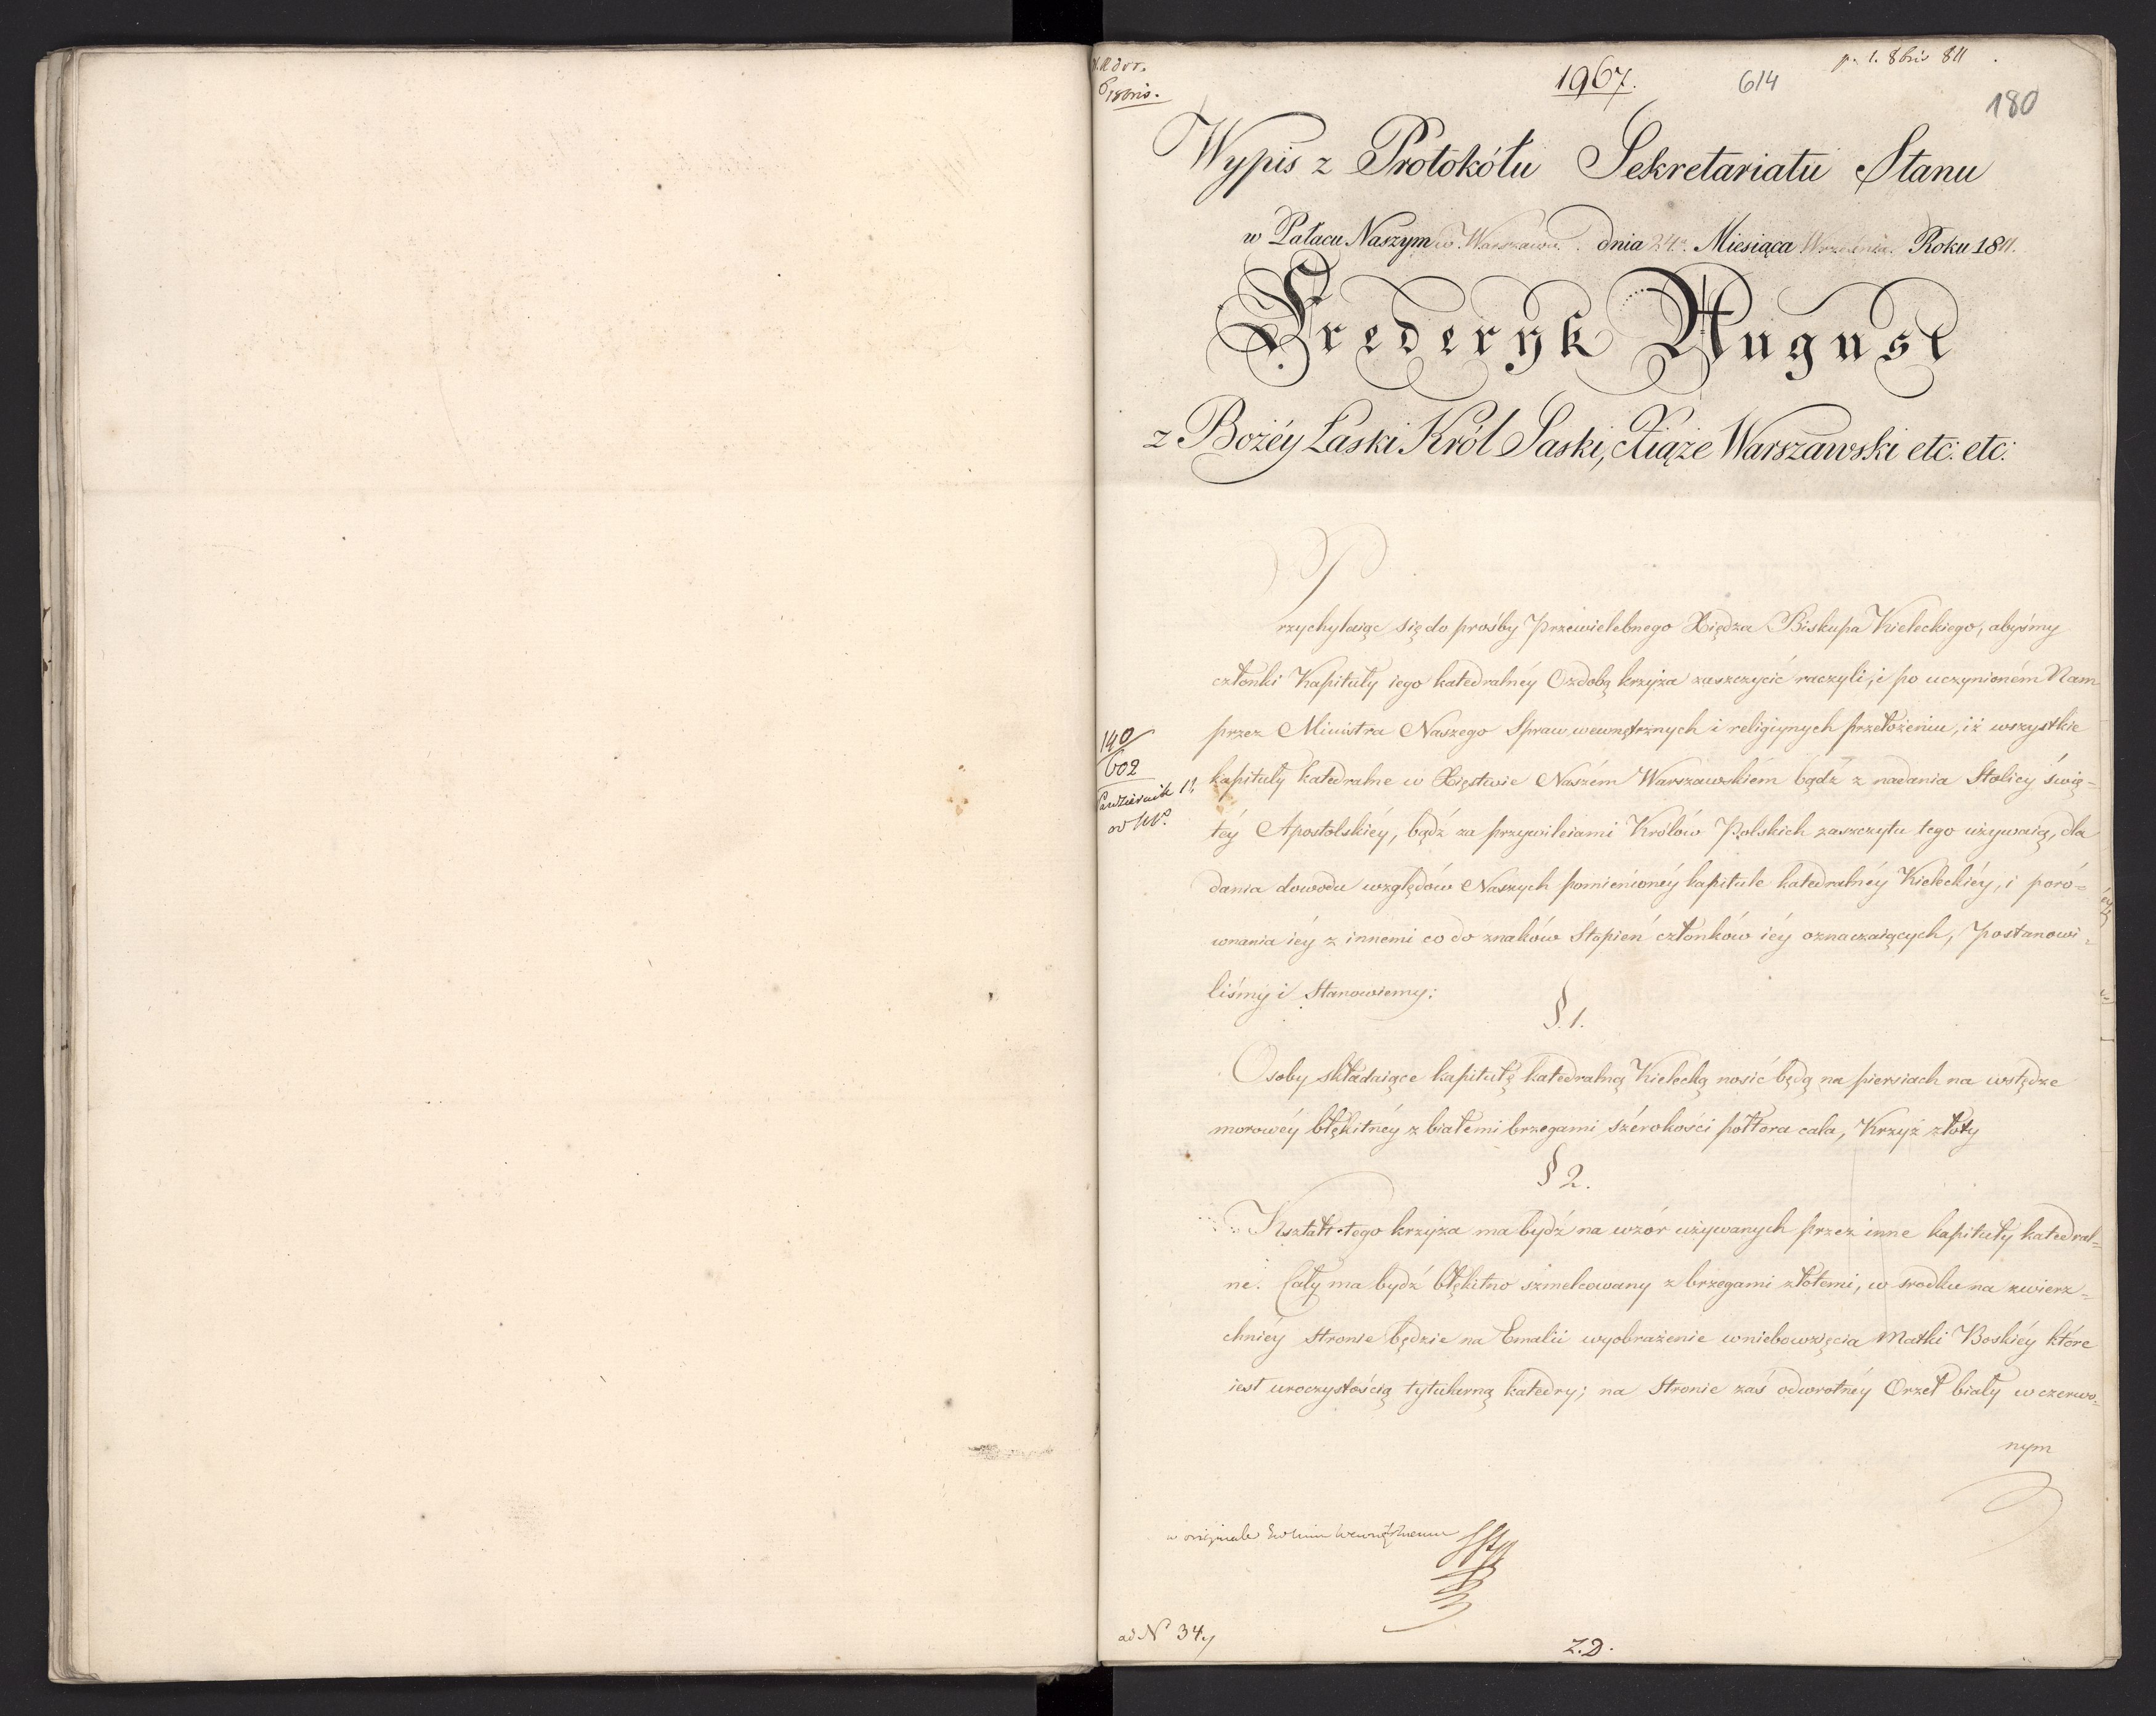 p. 1. 8bris 811
1967.
614
180
18bris.
Wypis z Protokółu Sekretariatu Stanu
w Pałacu Naszym w Warszawie dnia 24. Miesiąca Września Roku 1811.
Frederyk August
z Bożéy Łaski Król Saski, Xiąże Warszawski etc: etc:
Przychylaiąc się do prośby Przewielebnego Xiędza Biskupa Kieleckiego, abyśmy
członki Kapituły iego katedralnéy Ozdobą krzyża zaszczycić raczyli, i po uczynioném Nam
przez Ministra Naszego Spraw wewnętrznych i religiynych przełożeniu, iż wszystkie
kapituły katedralne w Xięstwie Naszém Warszawskiém bądź z nadania Stolicy świę=
téy Apostolskiéy, bądź za przywileiami Królów Polskich zaszczytu tego używaią, dla
dania dowodu względów Naszych pomienionéy kapitule katedralnéy Kieleckiéy, i poró=
wnania iéy z innemi co do znaków Stopień członków iéy oznaczaiących, postanowi=
liśmy i Stanowiemy:
140
602
Październik 11
§.1.
Osoby składaiące kapitułę katedralną Kielecką nosić będą na piersiach na wstędze
morowéy błękitnéy z białemi brzegami szérokości półtora cala, Krzyż złoty
§ 2.
Kształt tego krzyża ma bydź na wzór używanych przez inne kapituły katedral=
ne. Cały ma bydź błękitno szmelcowany z brzegami złotemi, w srodku na zwierz=
chniéy stronie będzie na Emalii wyobrażenie wniebowzięcia Matki Boskiéy które
iest uroczystością tytularną katedry; na Stronie zaś odwrotnéy Orzeł biały w czerwo=
nym
w originale
ad N 347
Z.D.